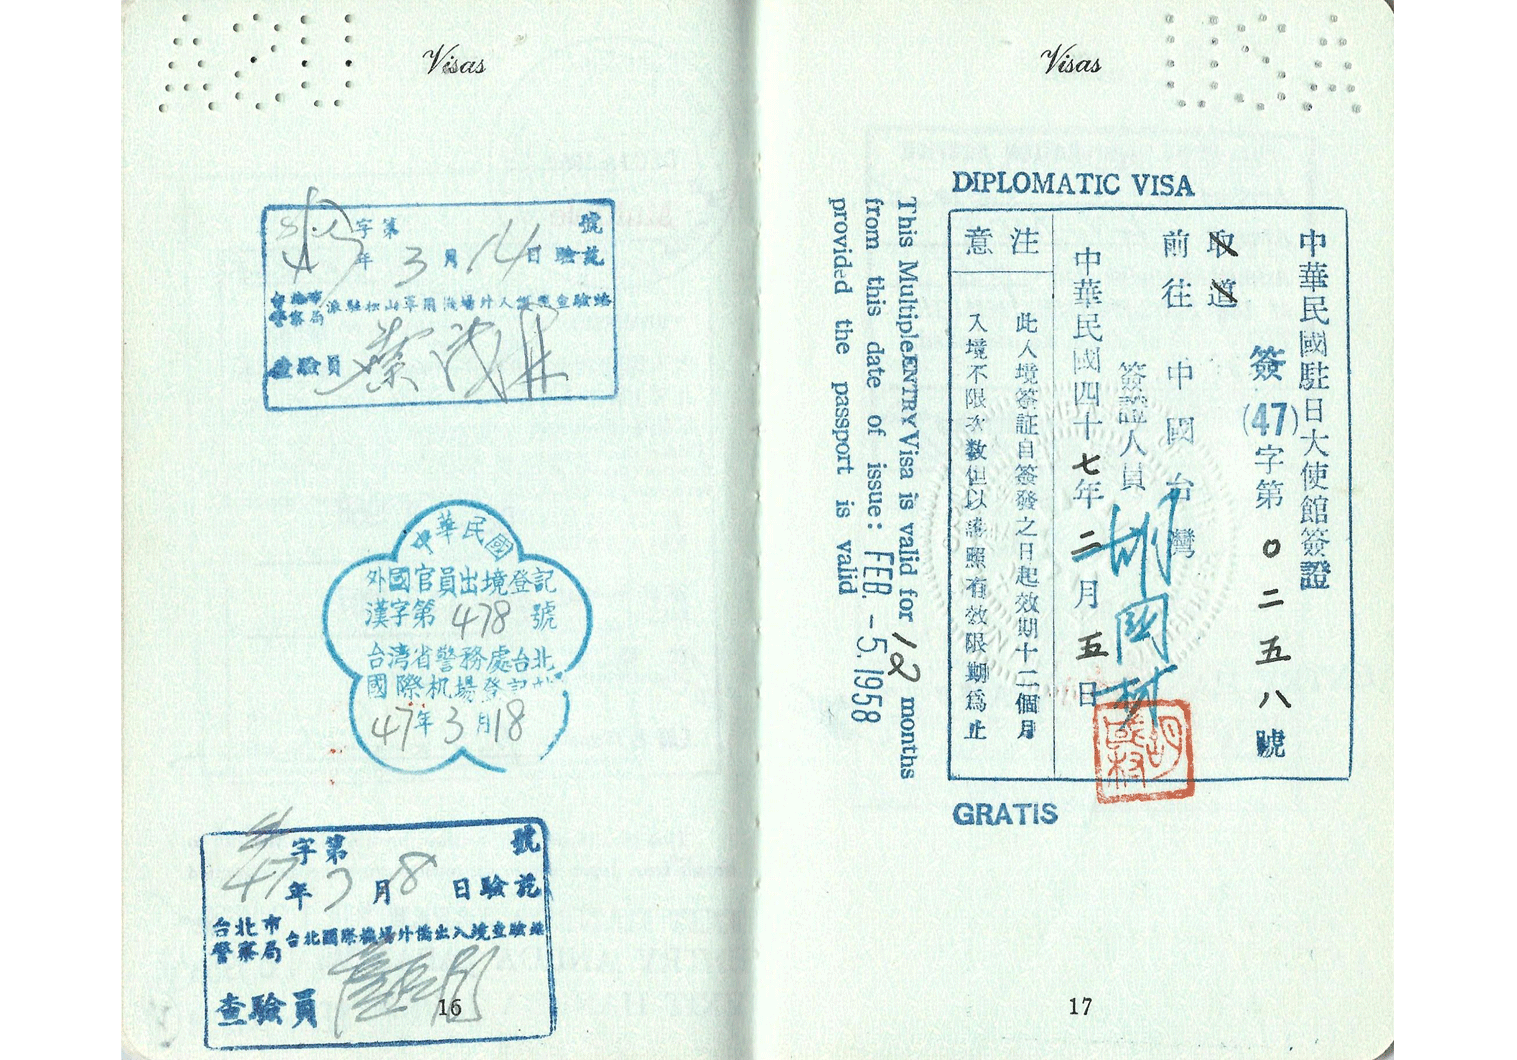 Visas
字第 號
47年3月14日驗訖
台北市警察局 派駐松山軍用機場外人護照查驗站
查驗員
中華民國
外國官員出境登記
漢字第 478 號
台灣省警務處台北
國際机場登記
47年3月18
字第 號
47年3月18日驗訖
台北市警察局 台北國際機場外僑出入境查驗站
查驗員
16
Visas
USA
DIPLOMATIC VISA
中華民國駐日大使館簽證
簽(47)字第〇二五八號
取道
前往中國台灣
簽證人員 胡國材
中華民國四十七年二月五日
注意
此入境簽証自簽發之日起效期十二個月
入境不限次數但以護照有效限期為止
This Multiple ENTRY Visa is valid for 12 months
from this date of issue: FEB. -5. 1958
provided the passport is valid
胡國材
GRATIS
17